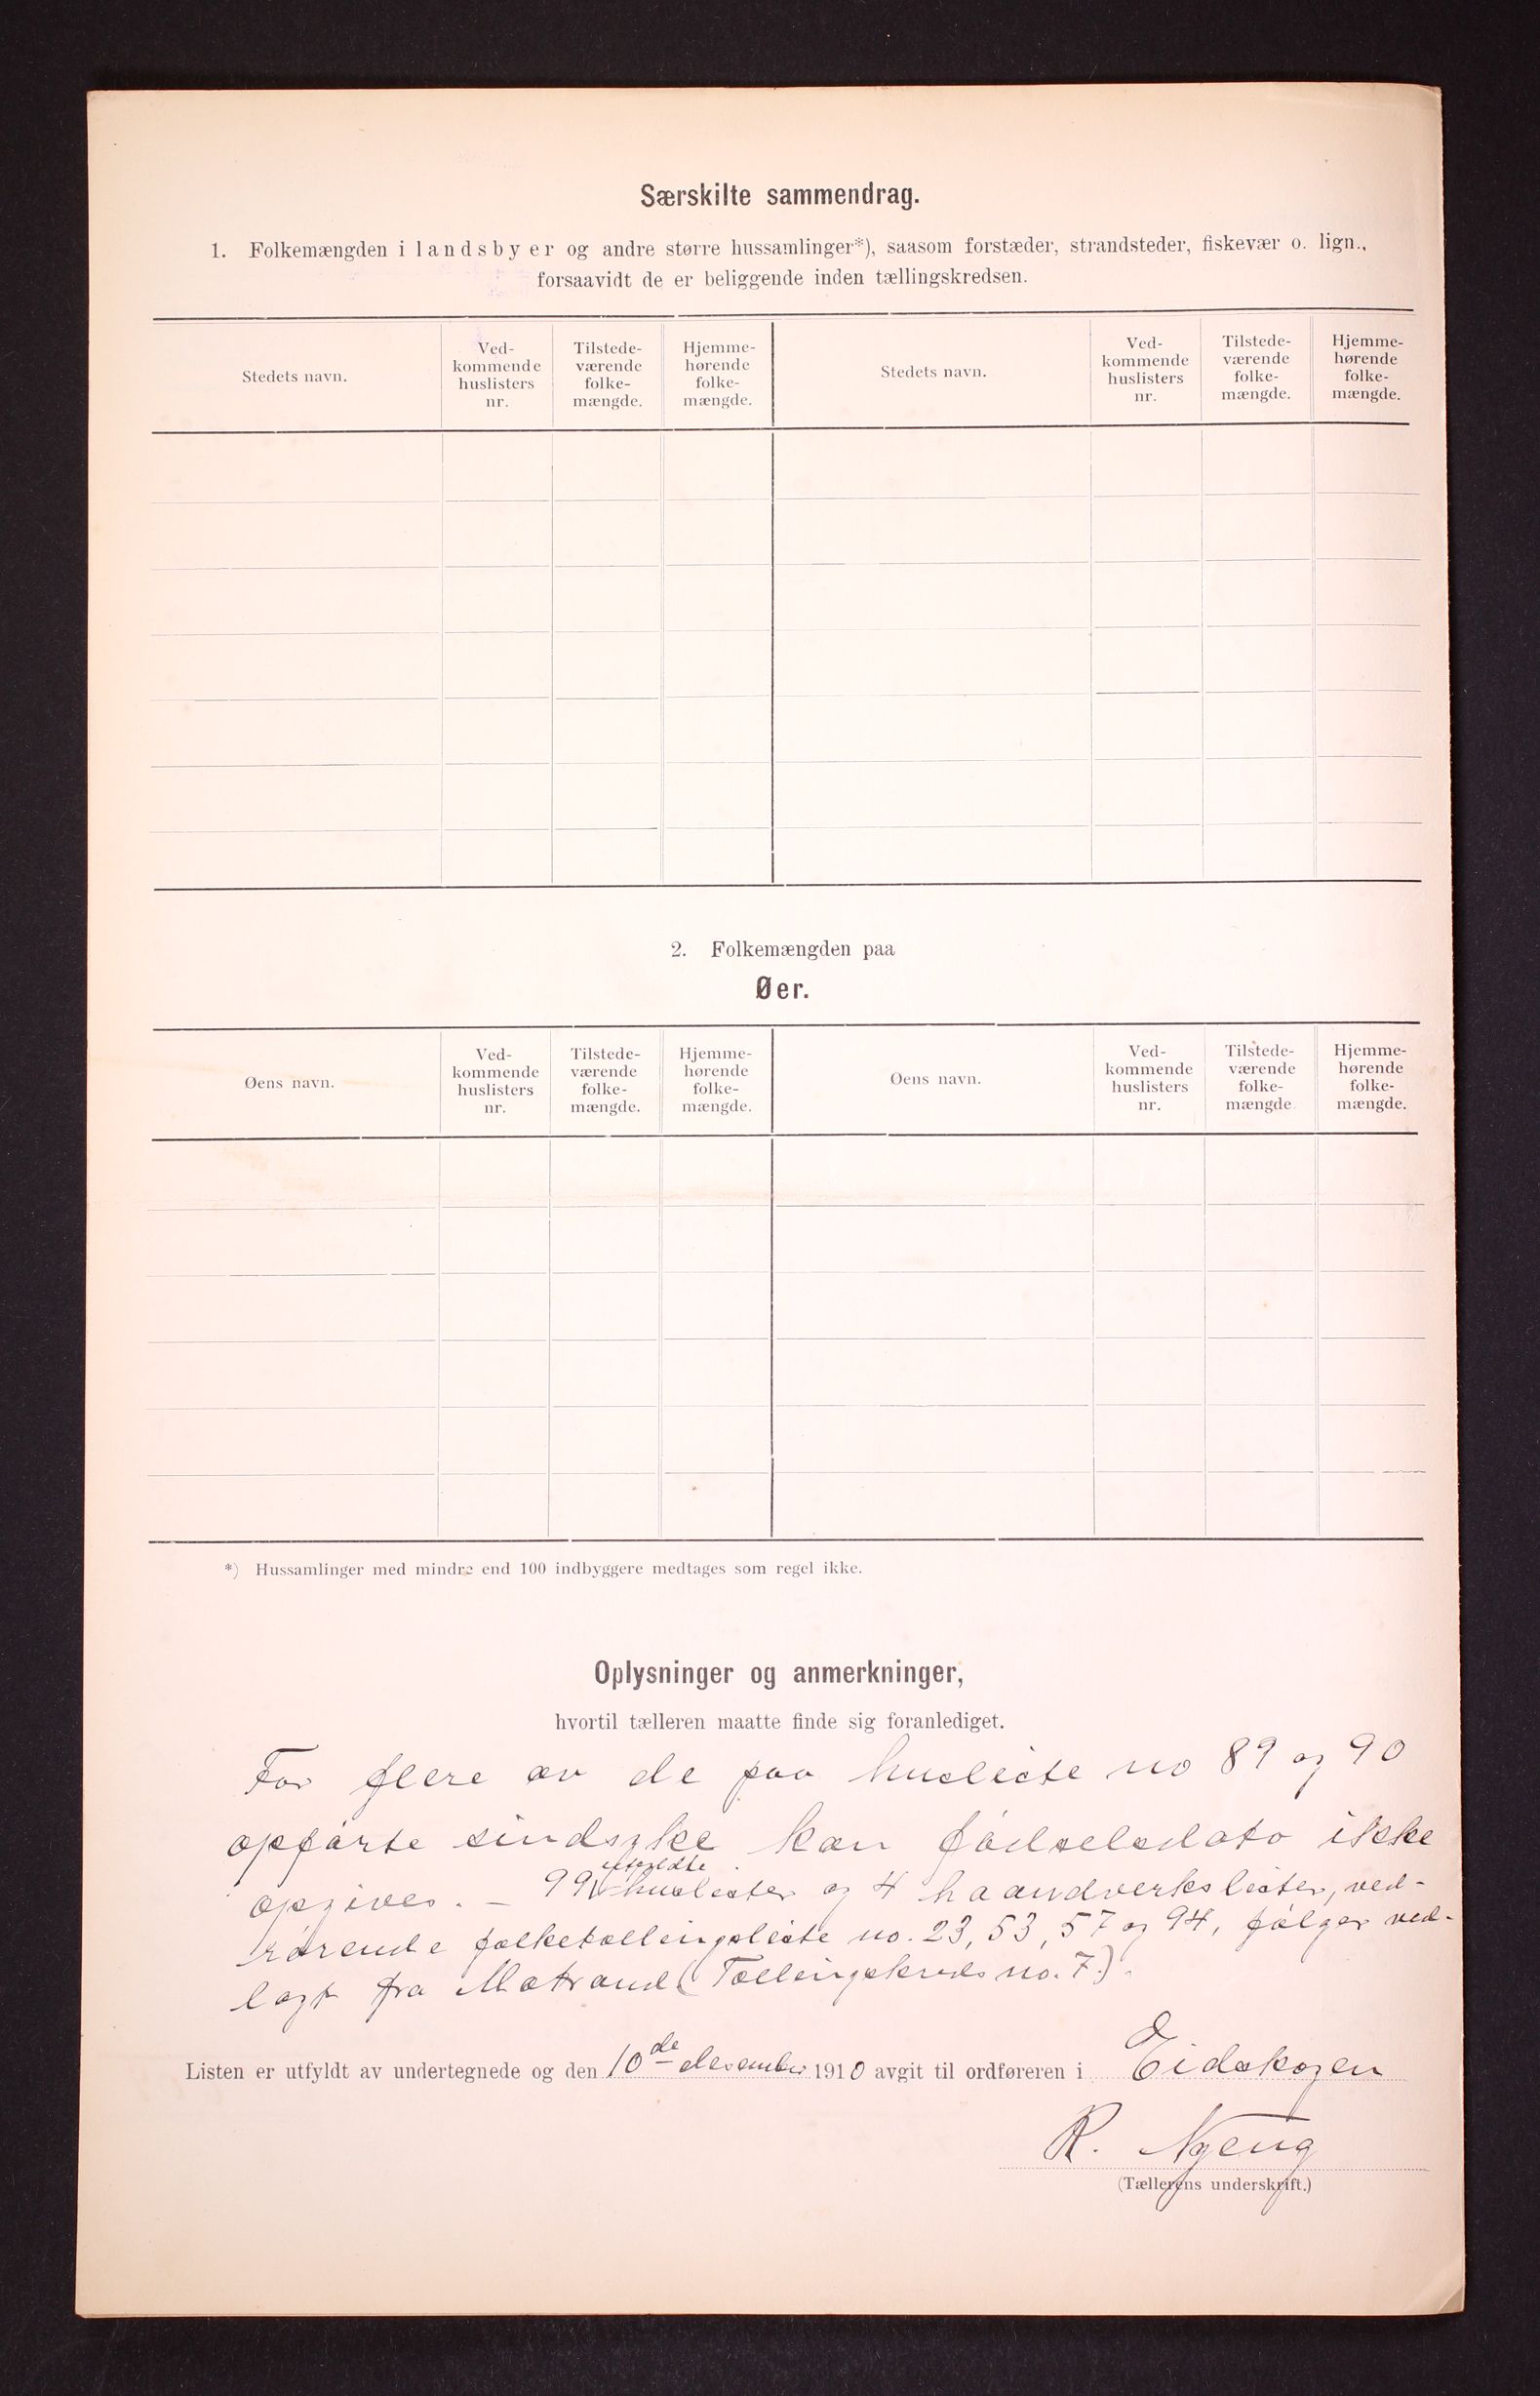 Særskilte sammendrag.
1. Folkemængden i landsbyer og andre større hussamlinger*), saasom forstæder, strandsteder, fiskevær o. lign.,
forsaavidt de er beliggende inden tællingskredsen.
Stedets navn.
Ved-
kommende
huslisters
nr.
Tilstede-
værende
folke-
mængde.
Hjemme-
hørende
folke-
mængde.
Stedets navn.
Ved-
kommende
huslisters
nr.
Tilstede-
værende
folke-
mængde.
Hjemme-
hørende
folke-
mængde.
2. Folkemængden paa
Øer.
Øens navn.
Ved-
kommende
huslisters
nr.
Tilstede-
værende
folke-
mængde.
Hjemme-
hørende
folke-
mængde.
Øens navn.
Ved-
kommende
huslisters
nr.
Tilstede-
værende
folke-
mængde
Hjemme-
hørende
folke-
mængde.
*) Hussamlinger med mindre end 100 indbyggere medtages som regel ikke.
Oplysninger og anmerkninger,
hvortil tælleren maatte finde sig foranlediget.
For flere av de paa husliste no 89 og 90
opførte sindsyke kan fødselsdato ikke
utfyldte
opgives. – 99 huslister og 4 haandverkslister, ved-
rørende folketællingsliste no. 23, 53, 57 og 94, følger ved-
lagt fra Matrand (Tællingskreds no. 7.).
Listen er utfyldt av undertegnede og den 10de december 1910 avgit til ordføreren i Eidskogen
R. Nyeng
(Tællerens underskrift.)